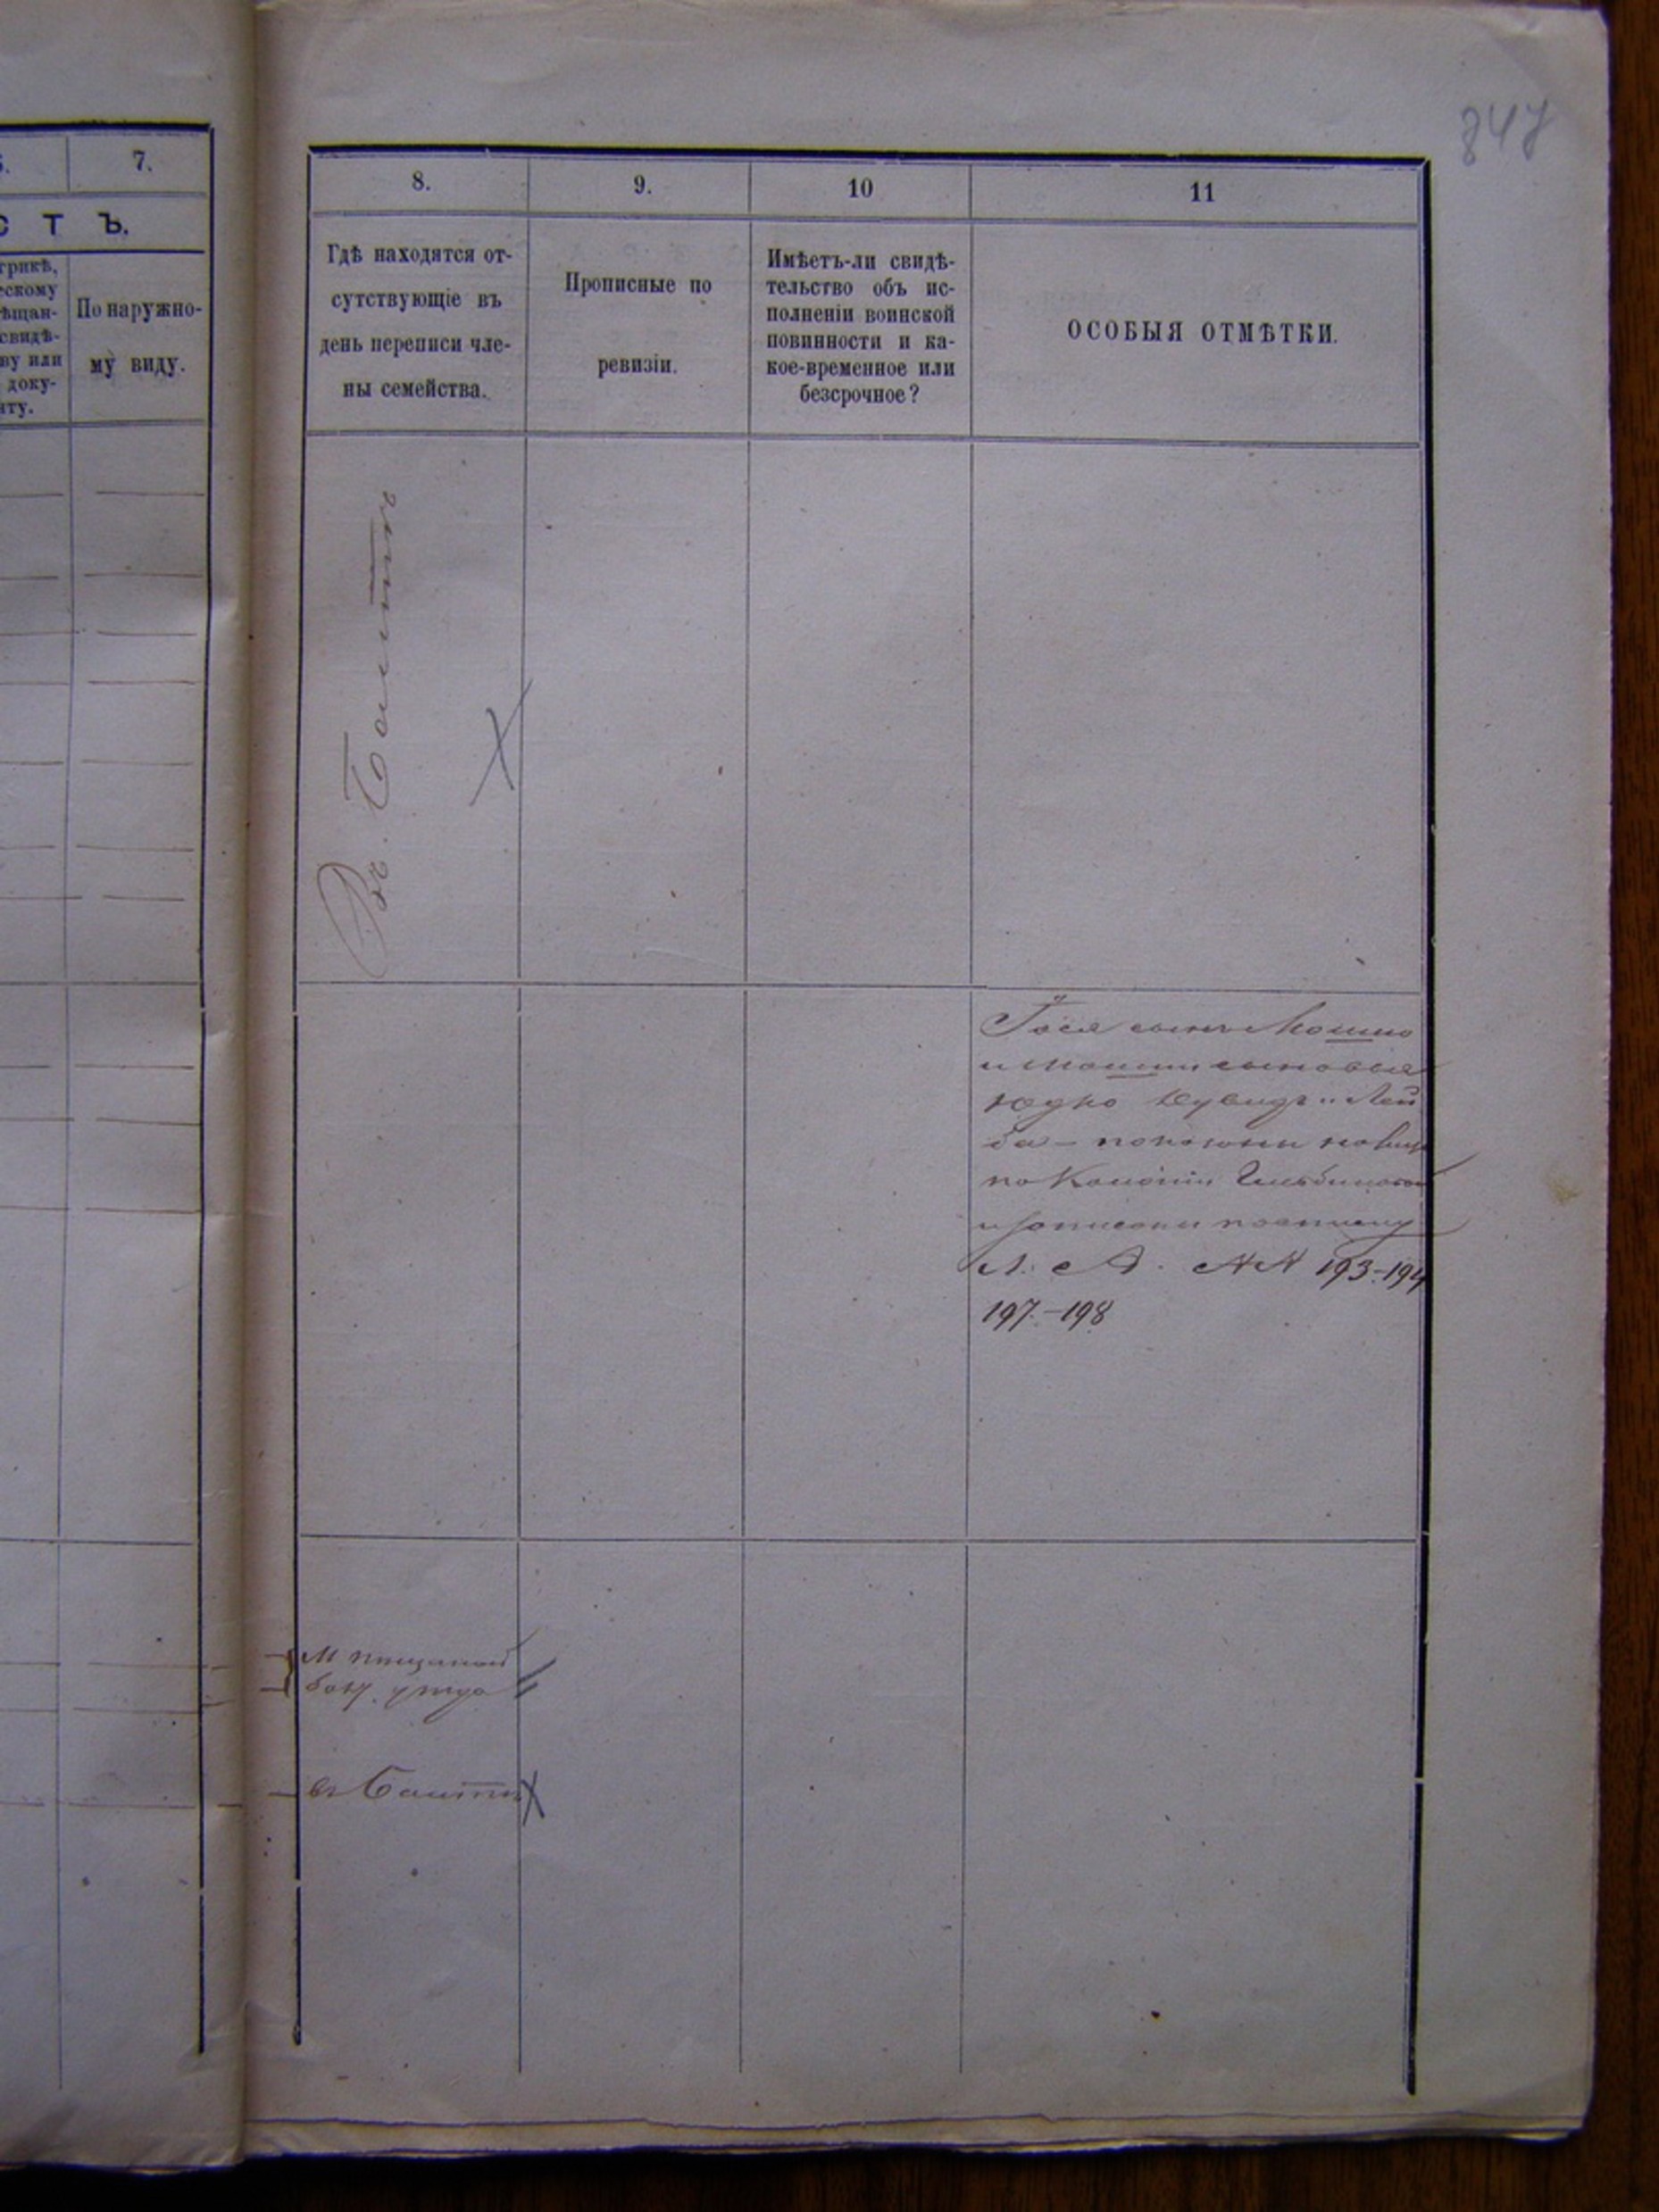 847
7.
С Т Ъ.
трикѣ,
ескому
ѣщан-
свидѣ-
ву или
доку-
нту.
По наружно-
му виду.
8.
9.
10
11
Гдѣ находятся от-
сутствующіе въ
день переписи чле-
ны семейства.
Прописные по
ревизіи.
Имѣетъ-ли свидѣ-
тельство объ ис-
полненіи воинской
повинности и ка-
кое-временное или
безсрочное?
ОСОБЫЯ ОТМѢТКИ.
Въ Балтѣ
сынъ Мошко
и Мошки сыновья
Юдко Дувидъ и Лей
ба – показаны
по Колоніи
и записаны
Л. А. №№ 193–194
197–198
М
уѣзда
въ Балтѣ